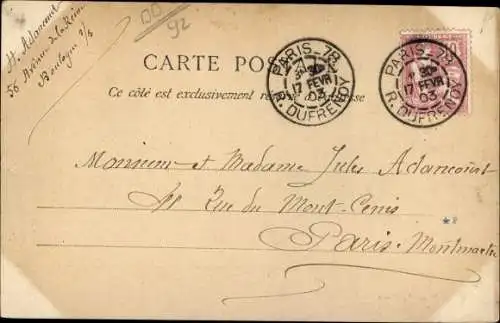 H. Adancourt
56 Avenue de la Reine
Boulogne s/s
92
CARTE POS
Ce côté est exclusivement r esse
PARIS_78
17 FEVR
03
R. DUFRENOY
PARIS_78
17 FEVR
03
R. DUFRENOY
10
Monsieur et Madame Jules Adancourt
11 Rue du Mont-Cenis
Paris-Montmartre